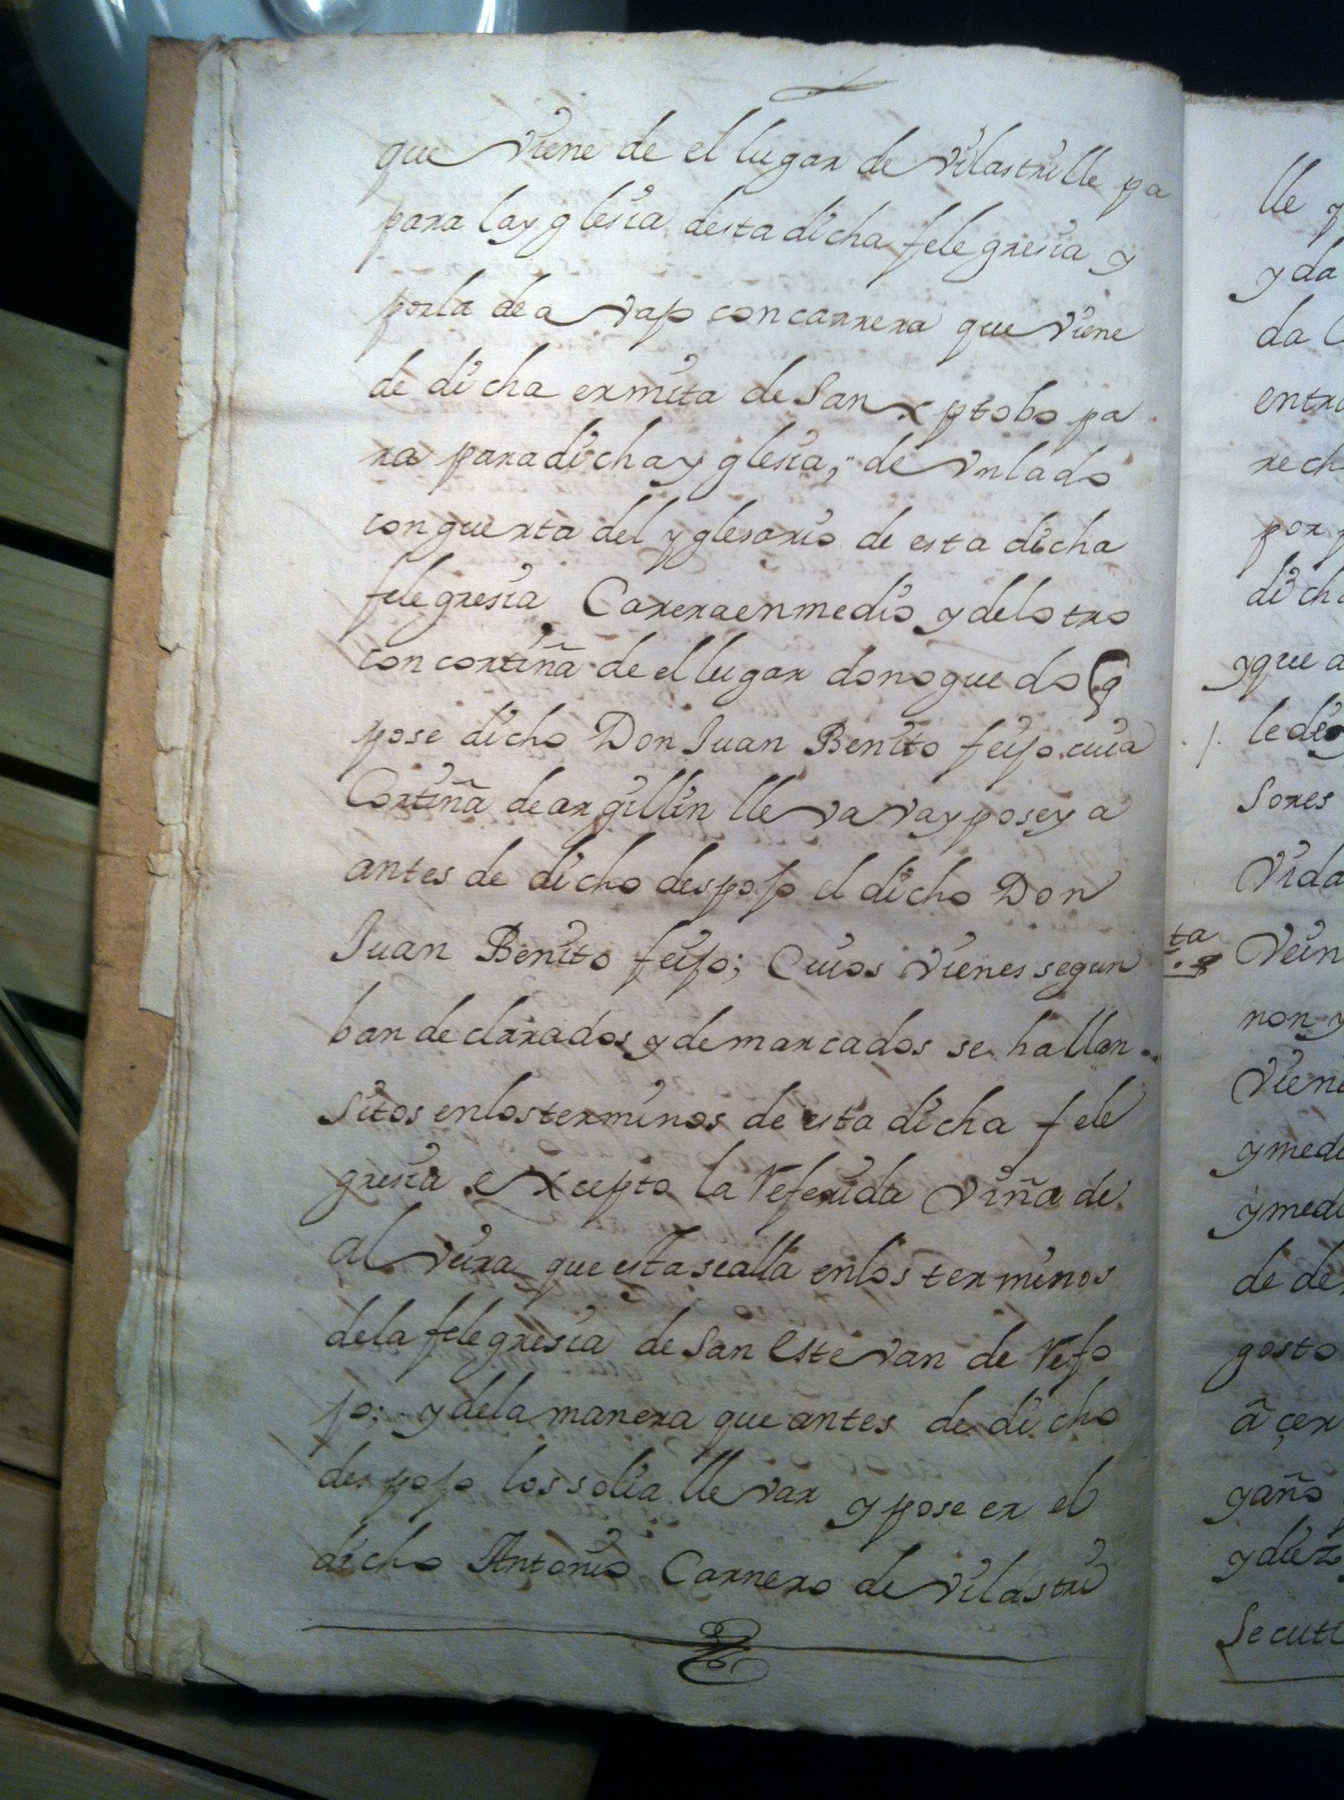 que viene de el lugar de vilastrille pa
para la yglesia desta dicha felegresia y
por la de avajo con carrera que viene
de dicha ermita de San xptobo pa
ra para dicha yglesia; de vn lado
con guerta del yglesario de esta dicha
felegresia Carrera en medio y del otro
con cortiña de el lugar donoguedo q
pose dicho Don Juan Benito feijo cuia
Cortiña de argillin llevava y poseya
antes de dicho despojo el dicho Don
Juan Benito feijo; Cuios vienes segun
ban declarados y demarcados se hallan
Sitos en los terminos de esta dicha fele
gresia excepto la Referida viña de
al veira que esta se alla en los terminos
de la felegresia de San Estevan de Refo
jo: y de la manera que antes de dicho
despojo los solia llevar y poseer el
dicho Antonio Carnero de vilastri
lle y
y da
da
entr
rech
por
dich
y que a
le de
Sores
Vida
ta
Vein
non y
Viene
y medi
y medi
de de
gosto
â çer
y año
y diez
Secut